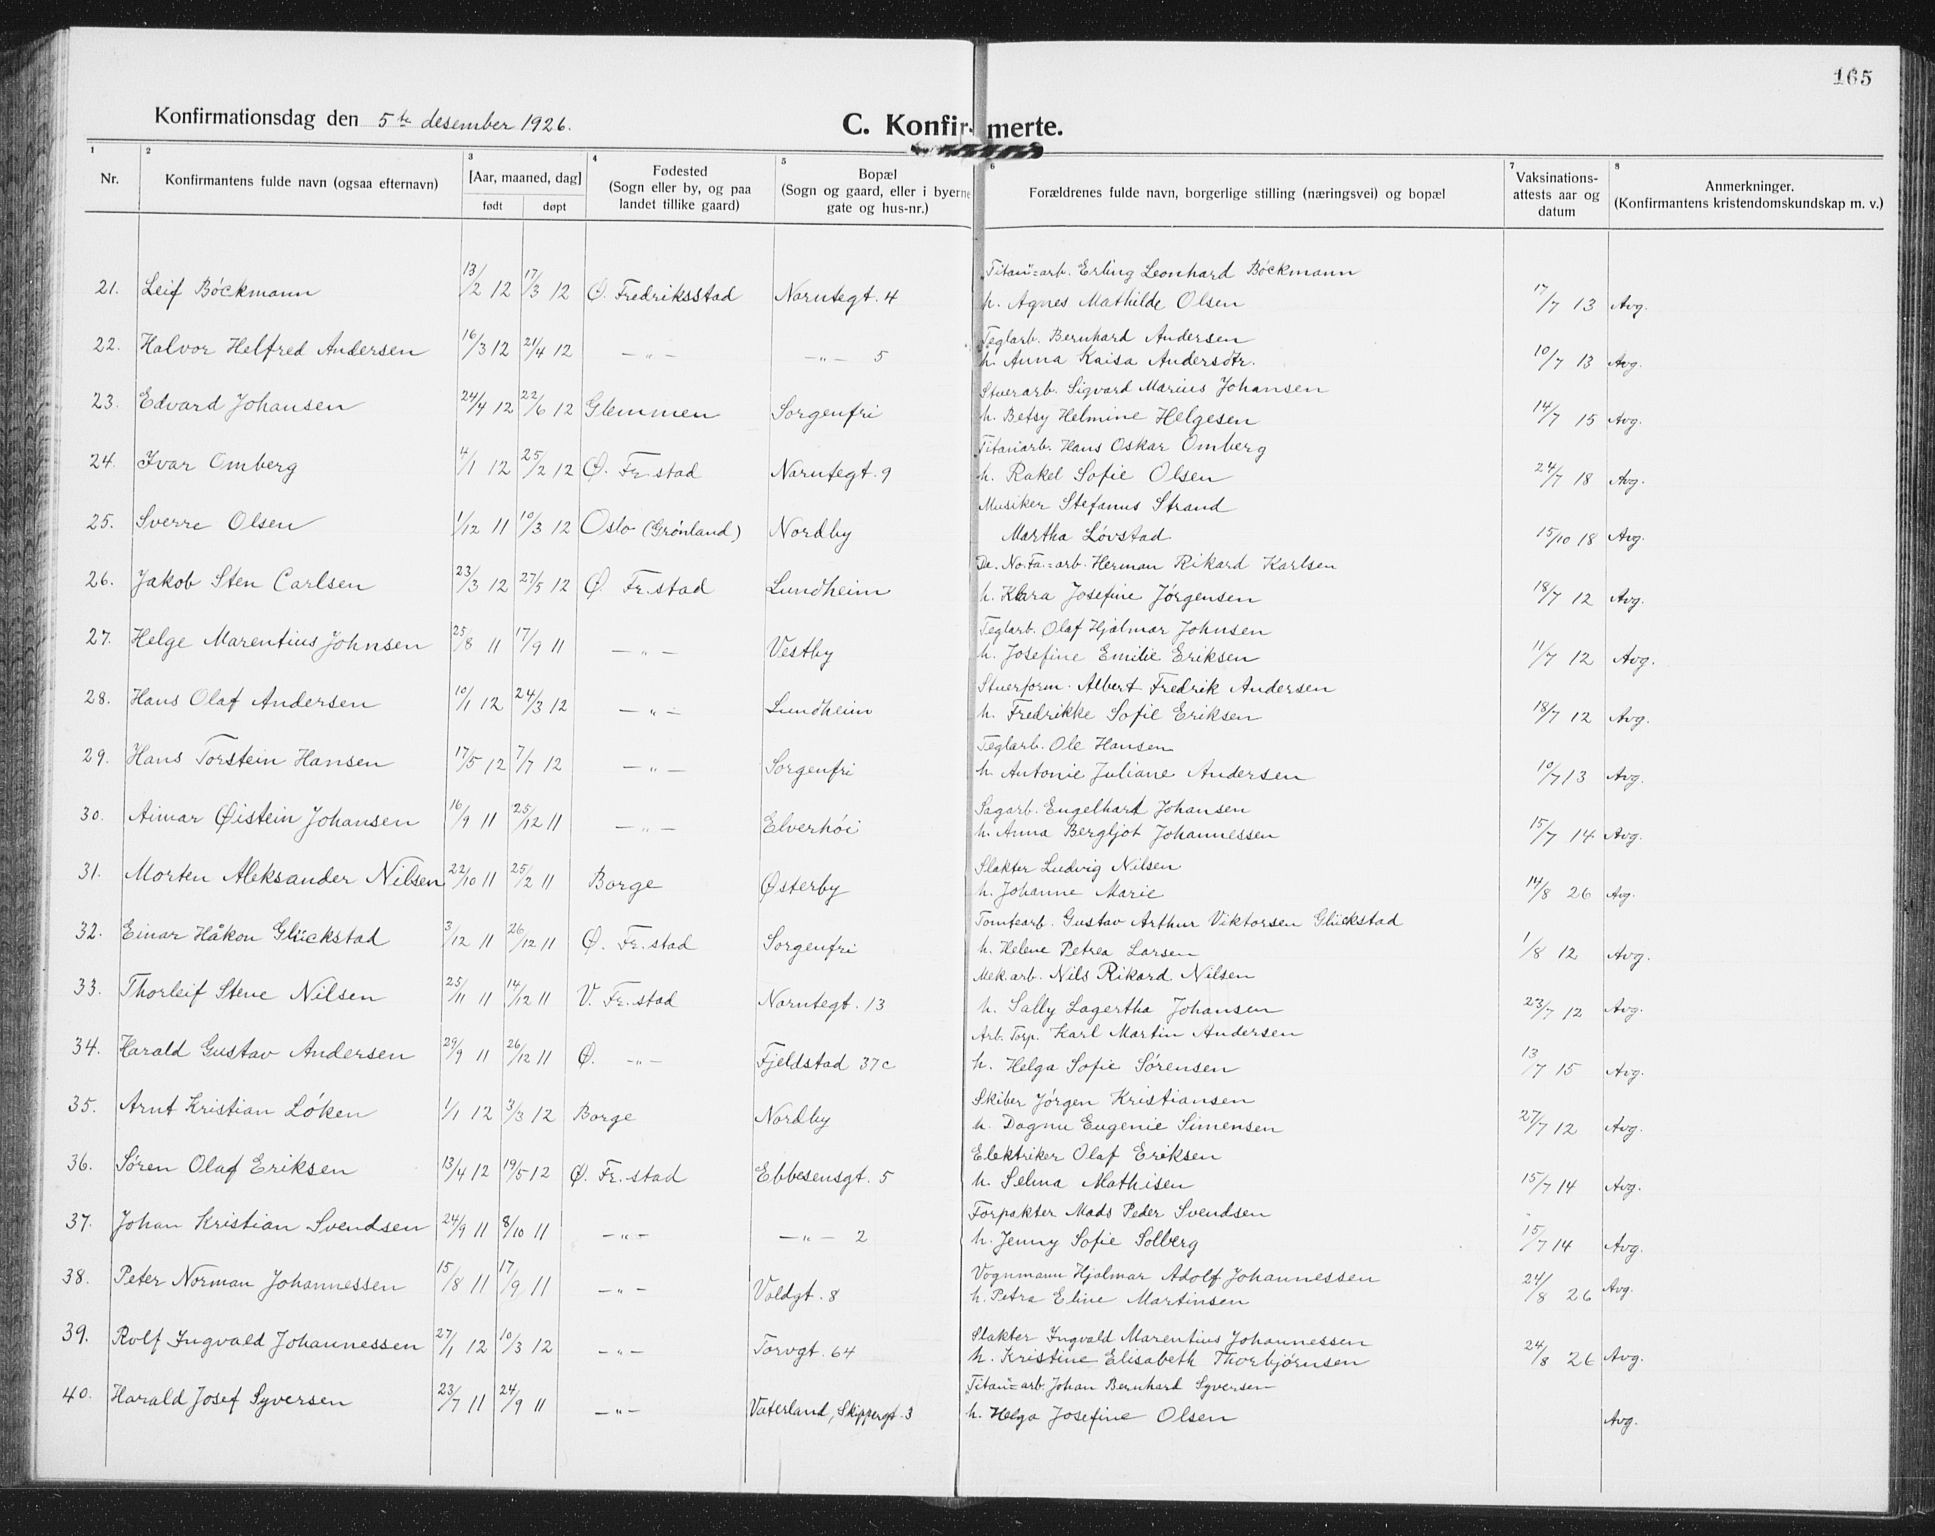 165
Konfirmationsdag den 5te desember 1926. C. Konfirmerte.
1 2 3 4 5 6 7 8
Nr. Konfirmantens fulde navn (ogsaa efternavn) [Aar, maaned, dag] født døpt Fødested (Sogn eller by, og paa landet tillike gaard) Bopæl (Sogn og gaard, eller i byerne gate og hus-nr.) Forældrenes fulde navn, borgerlige stilling (næringsvei) og bopæl Vaksinations-attests aar og datum Anmerkninger. (Konfirmantens kristendomskundskap m. v.)
"Titan"=arb. Erling Leonhard Böckmann
21. Leif Böckmann 13/2 12 17/3 12 Ø. Fredriksstad Narntegt. 4 h. Agnes Mathilde Olsen 17/7 13 Avg.
Teglarb. Bernhard Andersen
22. Halvor Helfred Andersen 16/3 12 21/4 12 —"— —"— 5 h. Anna Kaisa Andersdtr. 10/7 13 Avg.
Stuerarb. Sigvard Marius Johansen
23. Edvard Johansen 24/4 12 22/6 12 Glemmen Sorgenfri h. Betsy Helmine Helgesen 14/7 15 Avg.
Titanarb. Hans Oskar Omberg
24. Ivar Omberg 4/1 12 25/2 12 Ø. Fr.stad Narntegt. 9 h. Rakel Sofie Olsen 24/7 18 Avg.
Musiker Stefanus Strand
25. Sverre Olsen 1/12 11 10/3 12 Oslo (Grönland) Nordby Martha Lövstad 15/10 18 Avg.
De. No. Fa.=arb. Herman Rikard Karlsen
26. Jakob Sten Carlsen 23/3 12 27/5 12 Ø. Fr.stad Lundheim h. Klara Josefine Jörgensen 18/7 12 Avg.
Teglarb. Olaf Hjalmar Johnsen
27. Helge Marentius Johnsen 25/8 11 17/9 11 —"— Vestby h. Josefine Emilie Eriksen 11/7 12 Avg.
Stuerform. Albert Fredrik Andersen
28. Hans Olaf Andersen 10/1 12 24/3 12 —"— Lundheim h. Fredrikke Sofie Eriksen 18/7 12 Avg.
Teglarb. Ole Hansen
29. Hans Torstein Hansen 17/5 12 7/7 12 —"— Sorgenfri h. Antonie Juliane Andersen 10/7 13 Avg.
Sagarb. Engelhart Johansen
30. Aimar Øistein Johansen 16/9 11 25/12 11 —"— Elverhöi h. Anna Bergljot Johannessen 15/7 14 Avg.
Slakter Ludvig Nilsen
31. Morten Aleksander Nilsen 22/10 11 25/2 11 Borge Østerby h. Johanne Marie 14/8 26 Avg.
Tomtearb. Gustav Arthur Viktorsen Glückstad
32. Einar Håkon Glückstad 3/12 11 26/12 11 Ø. Fr.stad Sorgenfri h. Helene Petrea Larsen 1/8 12 Avg.
Mek.arb. Nils Rikard Nilsen
33. Thorleif Stene Nilsen 25/11 11 14/12 11 V. Fr.stad Narntegt. 13 h. Sally Lagertha Johansen 23/7 12 Avg.
Arb. Torp. Karl Martin Andersen
34. Harald Gustav Andersen 29/9 11 26/12 11 Ø. —"— Fjeldstad 37c h. Helga Sofie Sörensen 13/7 15 Avg.
Skiber Jørgen Kristiansen
35. Arnt Kristian Löken 1/1 12 3/3 12 Borge Nordby h. Dagny Eugenie Simensen 27/7 12 Avg.
Elektriker Olaf Eriksen
36. Sören Olaf Eriksen 13/4 12 19/5 12 Ø. Fr.stad Ebbesensgt. 5 h. Selma Mathisen 15/7 14 Avg.
Forpakter Mads Peder Svendsen
37. Johan Kristian Svendsen 24/9 11 8/10 11 —"— —"— 2 h. Jenny Sofie Solberg 15/7 14 Avg.
Vognmann Hjalmar Adolf Johannessen
38. Peter Norman Johannessen 15/8 11 17/9 11 —"— Voldgt. 8 h. Petra Eline Martinsen 24/8 26 Avg.
Slakter Ingvald Marentius Johannessen
39. Rolf Ingvald Johannessen 27/1 12 10/3 12 —"— Torvgt. 64 h. Kristine Elisabeth Thorbjörnsen 24/8 26 Avg.
"Titan"=arb. Johan Bernhard Syversen
40. Harald Josef Syversen 23/7 11 24/9 11 —"— Vaterland, Skippergt. 3 h. Helga Josefine Olsen Avg.